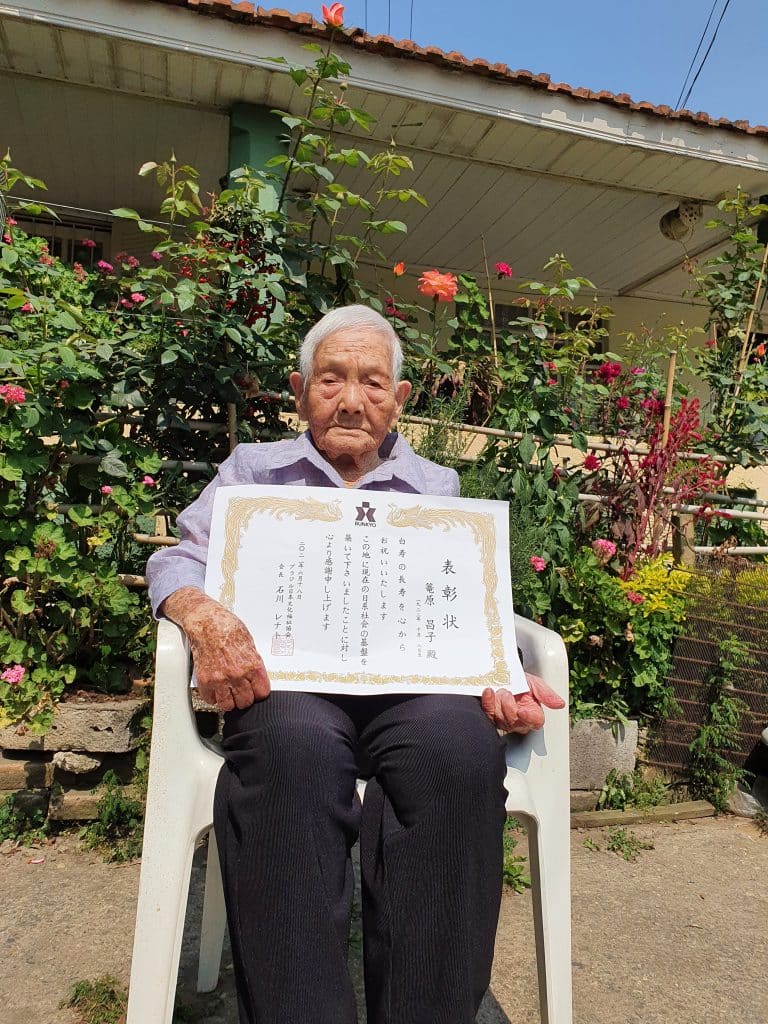 BUNKYO
表彰状
篭原 昌子 殿
白寿の長寿を心から
お祝いいたします
この地に現在の日系社会の基盤を
築いて下さいましたことに対し
心より感謝申し上げます
二〇二一年六月十八日
ブラジル日本文化福祉協会
会長 石川 レナト